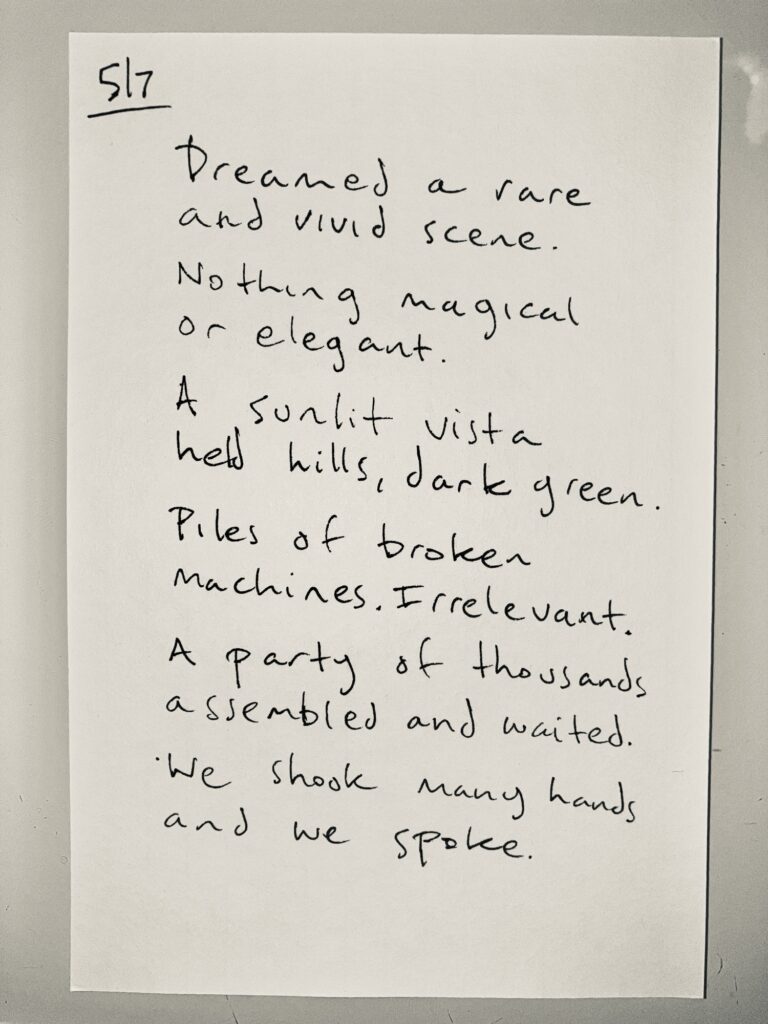 5/7
Dreamed a rare
and vivid scene.
Nothing magical
or elegant.
A sunlit vista
held hills, dark green.
Piles of broken
machines. Irrelevant.
A party of thousands
assembled and waited.
We shook many hands
and we spoke.